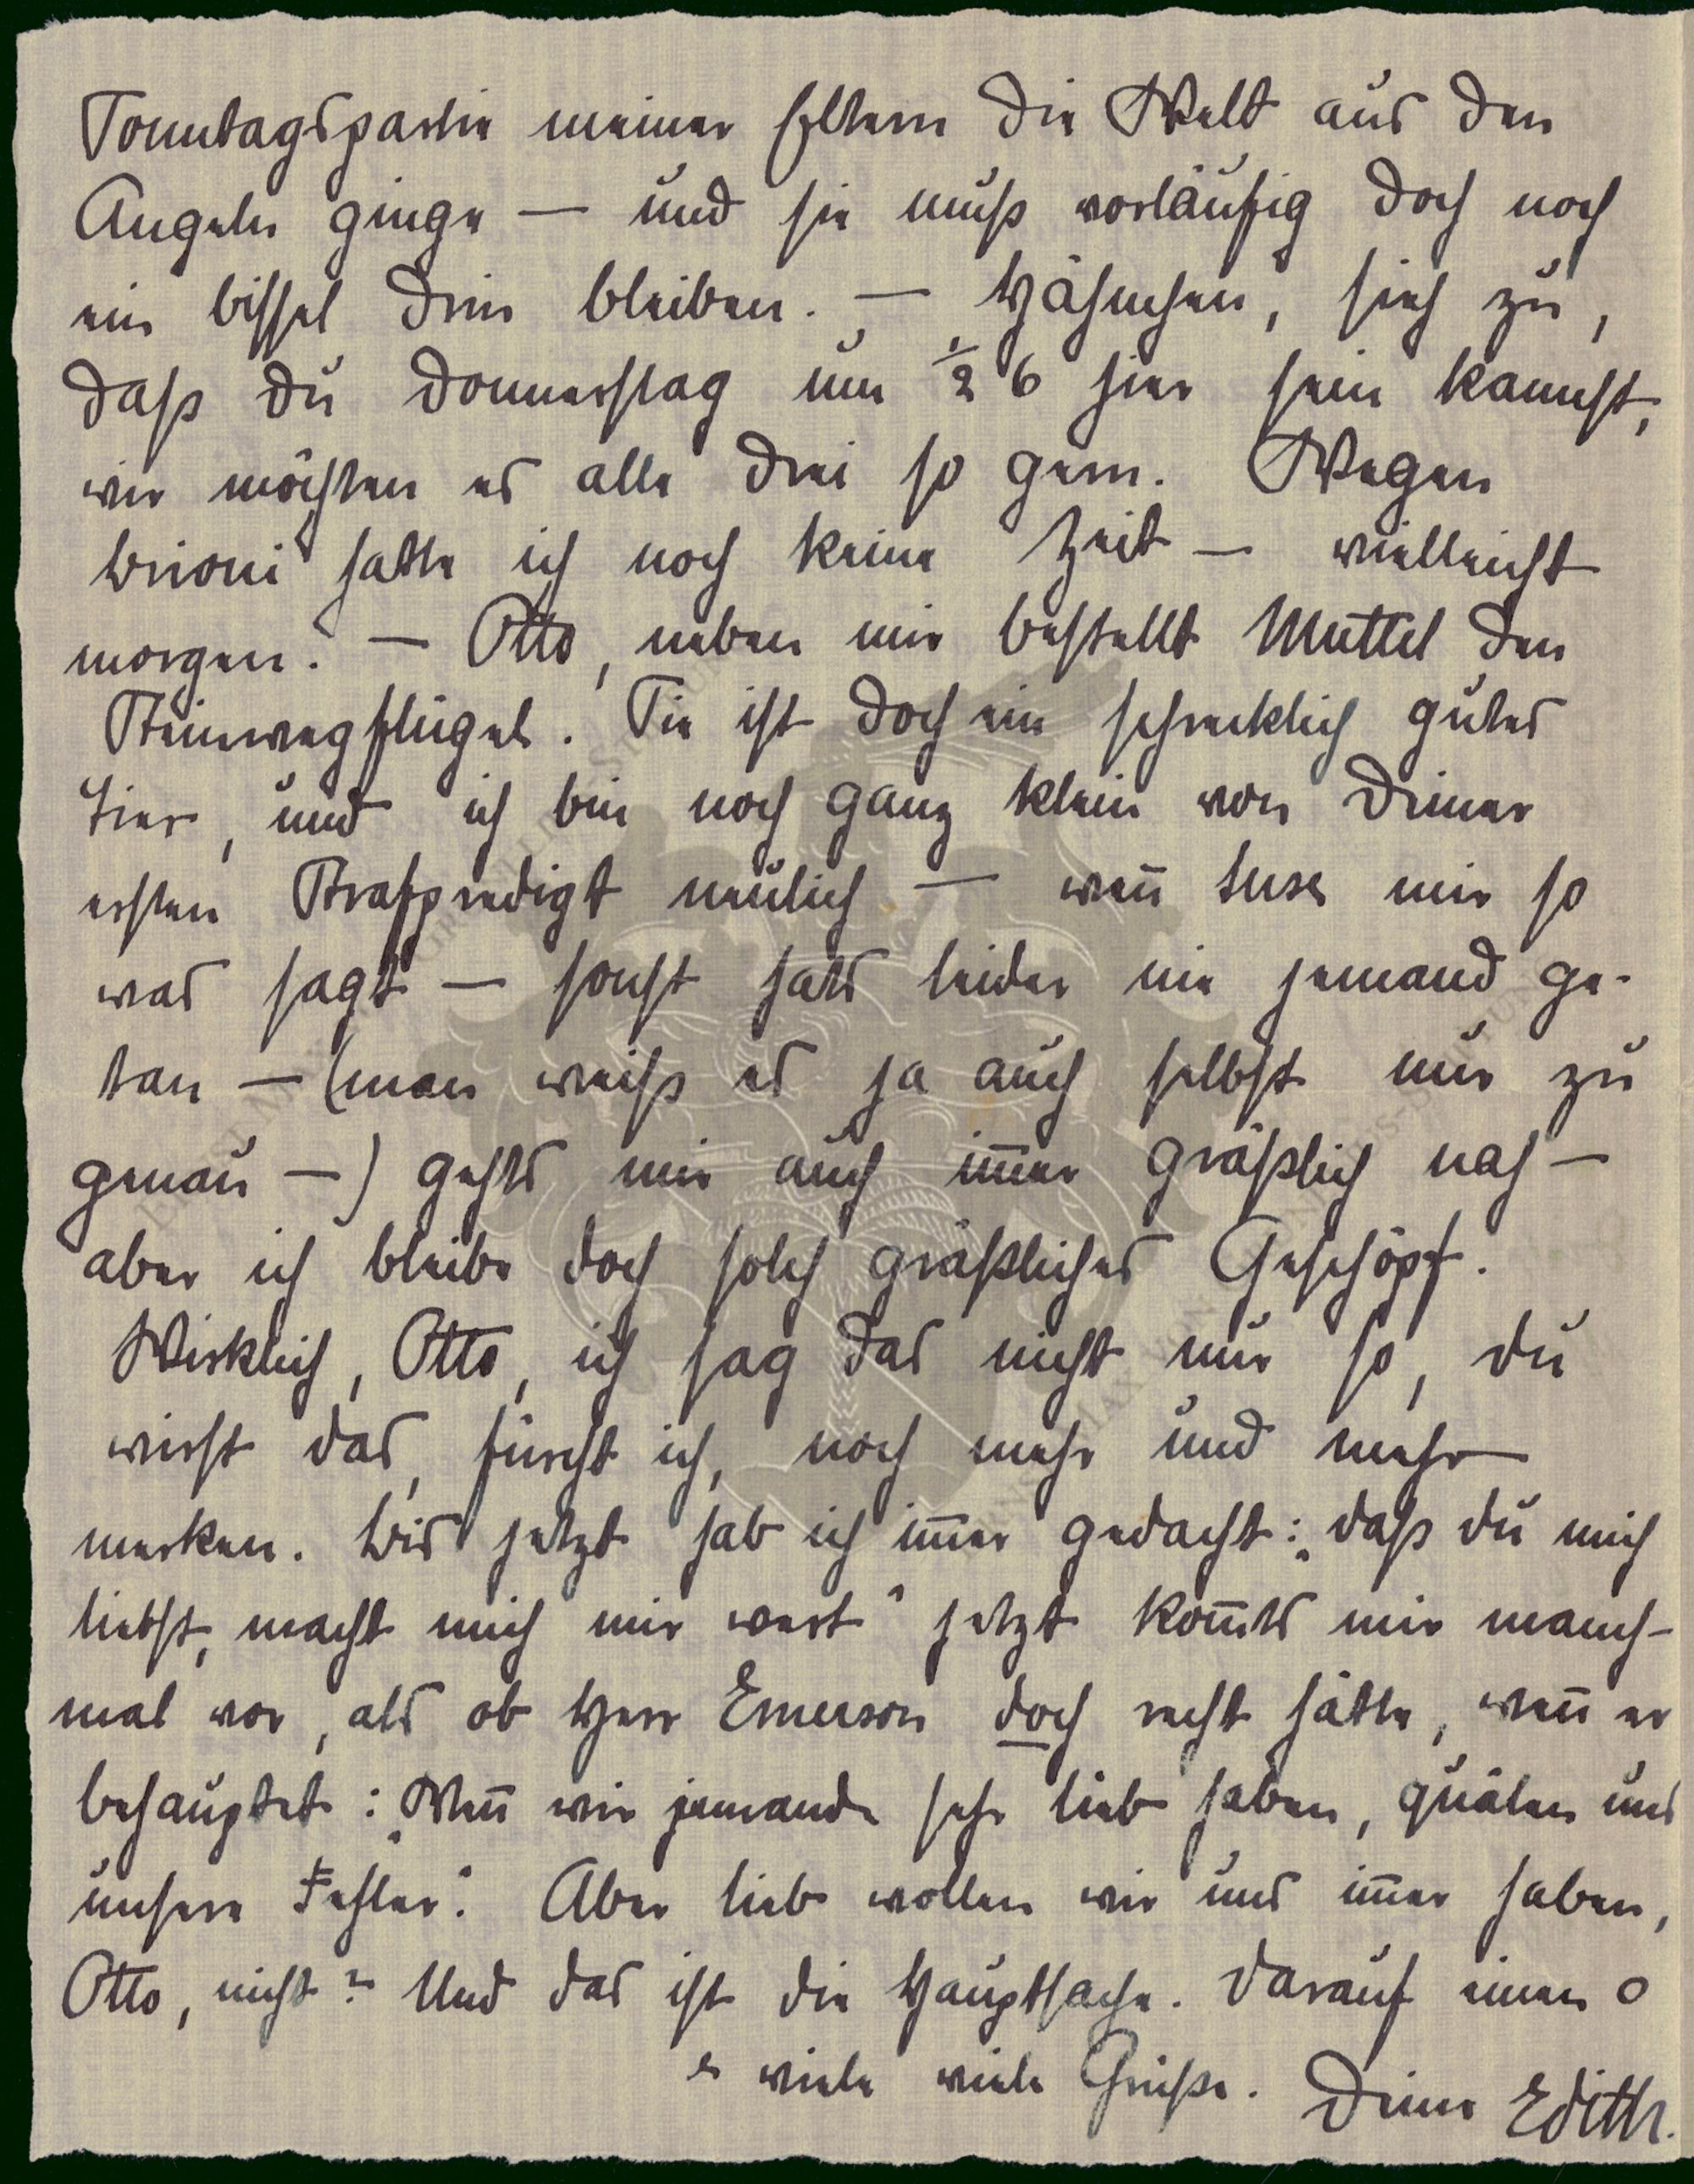 Sonntagspartie meiner Eltern die Welt aus den
Angeln ginge — und sie muß vorläufig doch noch
ein bissel drin bleiben. — Hähnchen, sieh zu,
daß du Donnerstag um ½ 6 hier sein kannst,
wir möchten es alle drei so gern. Wegen
Brioni hatte ich noch keine Zeit — vielleicht
morgen. — Otto, neben mir bestellt Muttel den
Steinwegflügel. Sie ist doch ein schrecklich gutes
Tier, und ich bin noch ganz klein von Deiner
ersten Strafpredigt neulich — weñ mir so
was sagt — sonst hats leider nie jemand ge-
tan — (man weiß es ja auch selbst nur zu
genau —) gehts mir auch im̄er gräßlich nah —
aber ich bleibe doch solch gräßliches Geschöpf.
Wirklich, Otto, ich sag das nicht nur so, du
wirst das, fürcht ich, noch mehr und mehr
merken. Bis jetzt hab ich im̄er gedacht: „daß du mich
liebst, macht mich mir wert" jetzt kom̄ts mir manch-
mal vor, als ob Herr Emerson doch recht hätte, weñ er
behauptet: „Weñ wir jemande sehr lieb haben, quälen uns
unsere Fehler." Aber lieb wollen wir uns im̄er haben,
Otto, nicht? Und das ist die Hauptsache. Darauf einen o
& viele viele Grüße. Deine Edith.